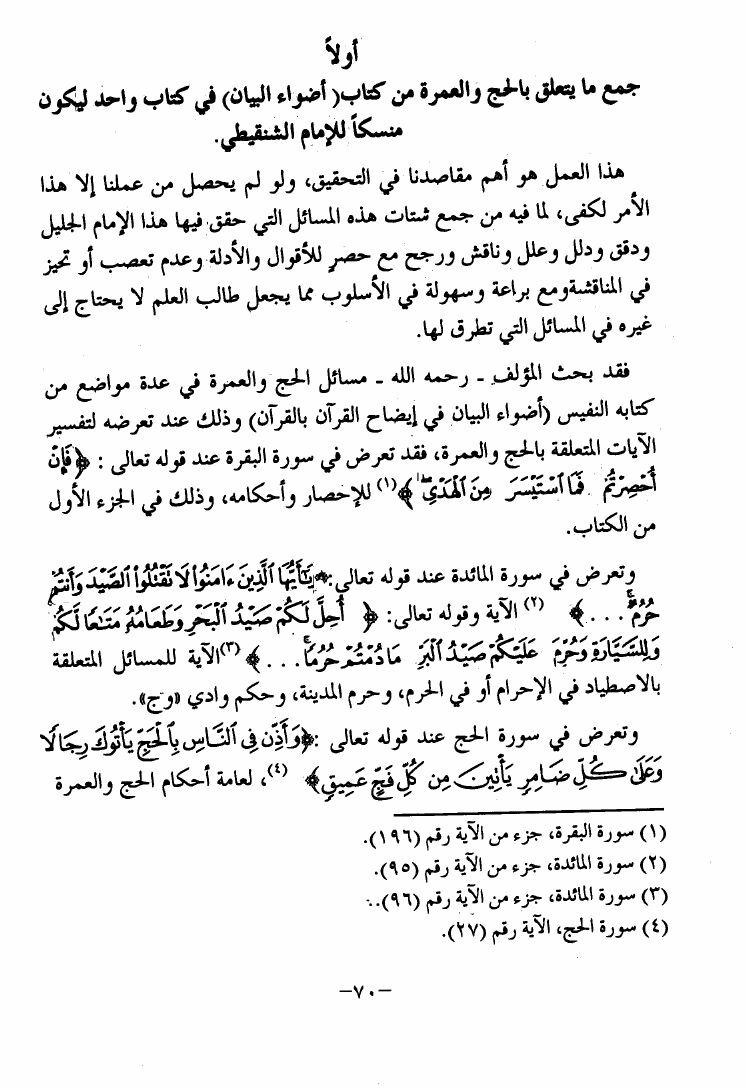 أولاً
جمع ما يتعلق بالحج والعمرة من كتاب( أضواء البيان) في كتاب واحد ليكون
منسكاً للإمام الشنقيطي.
هذا العمل هو أهم مقاصدنا في التحقيق، ولو لم يحصل من عملنا إلا هذا
الأمر لكفى، لما فيه من جمع شتات هذه المسائل التي حقق فيها هذا الإمام الجليل
ودقق ودلل وعلل وناقش ورجح مع حصرٍ للأقوال والأدلة وعدم تعصب أو تحيز
في المناقشةومع براعة وسهولة في الأسلوب مما يجعل طالب العلم لا يحتاج إلى
غيره في المسائل التي تطرق لها.
فقد بحث المؤلف ـ رحمه الله ـ مسائل الحج والعمرة في عدة مواضع من
كتابه النفيس (أضواء البيان في إيضاح القرآن بالقرآن) وذلك عند تعرضه لتفسير
الآيات المتعلقة بالحج والعمرة، فقد تعرض في سورة البقرة عند قوله تعالى : ﴿فَإِنْ
أُحْصِرْتُمْ فَمَا ٱسْتَيْسَرَ مِنَ ٱلْهَدْيِۖ﴾(١) للإحصار وأحكامه، وذلك في الجزء الأول
من الكتاب.
وتعرض في سورة المائدة عند قوله تعالى:﴿يَـٰٓأَيُّهَا ٱلَّذِينَ ءَامَنُوا۟ لَا تَقْتُلُوا۟ ٱلصَّيْدَ وَأَنتُمْ
حُرُمٌۚ...﴾ (٢) الآية وقوله تعالى: ﴿ أُحِلَّ لَكُمْ صَيْدُ ٱلْبَحْرِ وَطَعَامُهُۥ مَتَـٰعًا لَّكُمْ
وَلِلسَّيَّارَةِۖ وَحُرِّمَ عَلَيْكُمْ صَيْدُ ٱلْبَرِّ مَا دُمْتُمْ حُرُمًاۗ...﴾(٣)الآية للمسائل المتعلقة
بالاصطياد في الإحرام أو في الحرم، وحرم المدينة، وحكم وادي «وج».
وتعرض في سورة الحج عند قوله تعالى :﴿وَأَذِّن فِى ٱلنَّاسِ بِٱلْحَجِّ يَأْتُوكَ رِجَالًا
وَعَلَىٰ كُلِّ ضَامِرٍ يَأْتِينَ مِن كُلِّ فَجٍّ عَمِيقٍ﴾ (٤)، لعامة أحكام الحج والعمرة
(١) سورة البقرة، جزء من الآية رقم (١٩٦).
(٢) سورة المائدة، جزء من الآية رقم (٩٥).
(٣) سورة المائدة، جزء من الآية رقم (٩٦).
(٤) سورة الحج، الآية رقم (٢٧).
−٧٠−